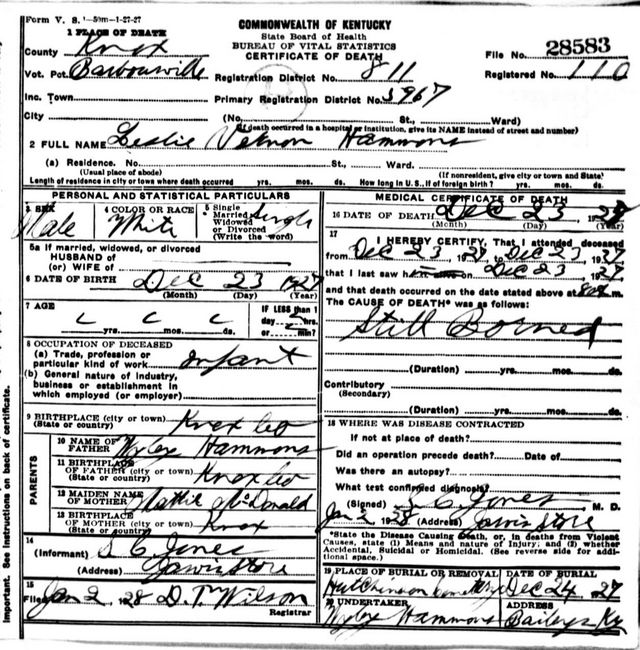 Form V. S. 1-50m-1-27-27
COMMONWEALTH OF KENTUCKY
State Board of Health
BUREAU OF VITAL STATISTICS
CERTIFICATE OF DEATH
1 PLACE OF DEATH
County Knox
File No. 28583
Vot. Pct. Barbourville
Registration District No. 811
Registered No. 110
Inc. Town
Primary Registration District No. 5967
City (No. St., Ward)
(If death occurred in a hospital or institution, give its NAME instead of street and number)
2 FULL NAME Leslie Vernon Hammons
(a) Residence. No. St., Ward.
(Usual place of abode) (If nonresident, give city or town and State)
Length of residence in city or town where death occurred yrs. mos. ds. How long in U. S., if of foreign birth? yrs. mos. ds.
PERSONAL AND STATISTICAL PARTICULARS
3 SEX Male
4 COLOR OR RACE White
5 Single Married Widowed or Divorced (Write the word) Single
5a If married, widowed, or divorced
HUSBAND of
(or) WIFE of
6 DATE OF BIRTH Dec 23 1927
(Month) (Day) (Year)
7 AGE
yrs. mos. ds.
IF LESS than 1 day hrs. or min.?
8 OCCUPATION OF DECEASED
(a) Trade, profession or particular kind of work Infant
(b) General nature of industry, business or establishment in which employed (or employer)
9 BIRTHPLACE (city or town) (State or country) Knox Co
PARENTS
10 NAME OF FATHER Wyley Hammons
11 BIRTHPLACE OF FATHER (city or town) (State or country) Knox Co
12 MAIDEN NAME OF MOTHER Mattie McDonald
13 BIRTHPLACE OF MOTHER (city or town) (State or country) Knox
14
(Informant) S C Jones
(Address) Jarvis Store
15
Filed Jan 2 1928 D. T. Wilson
Registrar
MEDICAL CERTIFICATE OF DEATH
16 DATE OF DEATH Dec 23 1927
(Month) (Day) (Year)
17
I HEREBY CERTIFY, That I attended deceased
from Dec 23 1927 to Dec 23, 1927
that I last saw h on Dec 23, 1927
and that death occurred on the date stated above at m.
The CAUSE OF DEATH* was as follows:
Still Borned
(Duration) yrs. mos. ds.
Contributory
(Secondary)
(Duration) yrs. mos. ds.
18 WHERE WAS DISEASE CONTRACTED
If not at place of death?
Did an operation precede death? Date of
Was there an autopsy?
What test confirmed diagnosis?
(Signed) S. C. Jones M. D.
Jan 2 1928 (Address) Jarvis Store
*State the Disease Causing Death, or, in deaths from Violent Causes, state (1) Means and nature of Injury; and (2) whether Accidental, Suicidal or Homicidal. (See reverse side for additional space.)
19 PLACE OF BURIAL OR REMOVAL Hutchinson Cemetery
DATE OF BURIAL Dec 24 1927
20 UNDERTAKER Wyley Hammons
ADDRESS Baileys Ky
important. See instructions on back of certificate.